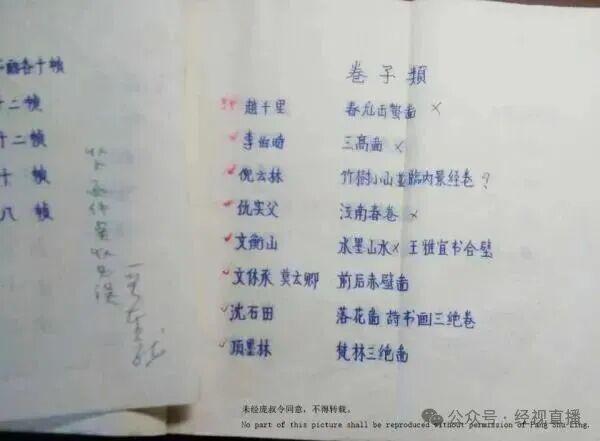 各十帧
十二帧
十二帧
十 帧
八 帧
卷子類
趙千里 春龙起蟄啚 ×
李伯時 三高啚 ×
倪云林 竹樹小山並臨内景经卷 ?
仇实父 江南春卷 ×
文衡山 水墨山水× 王雅宜书合璧
文休承 莫云卿 前后赤壁啚
沈石田 落花啚 詩书画三绝卷
项墨林 梵林三绝啚
未经庞叔令同意，不得转载。
No part of this picture shall be reproduced without permission of Pang Shu Ling.
公众号 · 经视直播